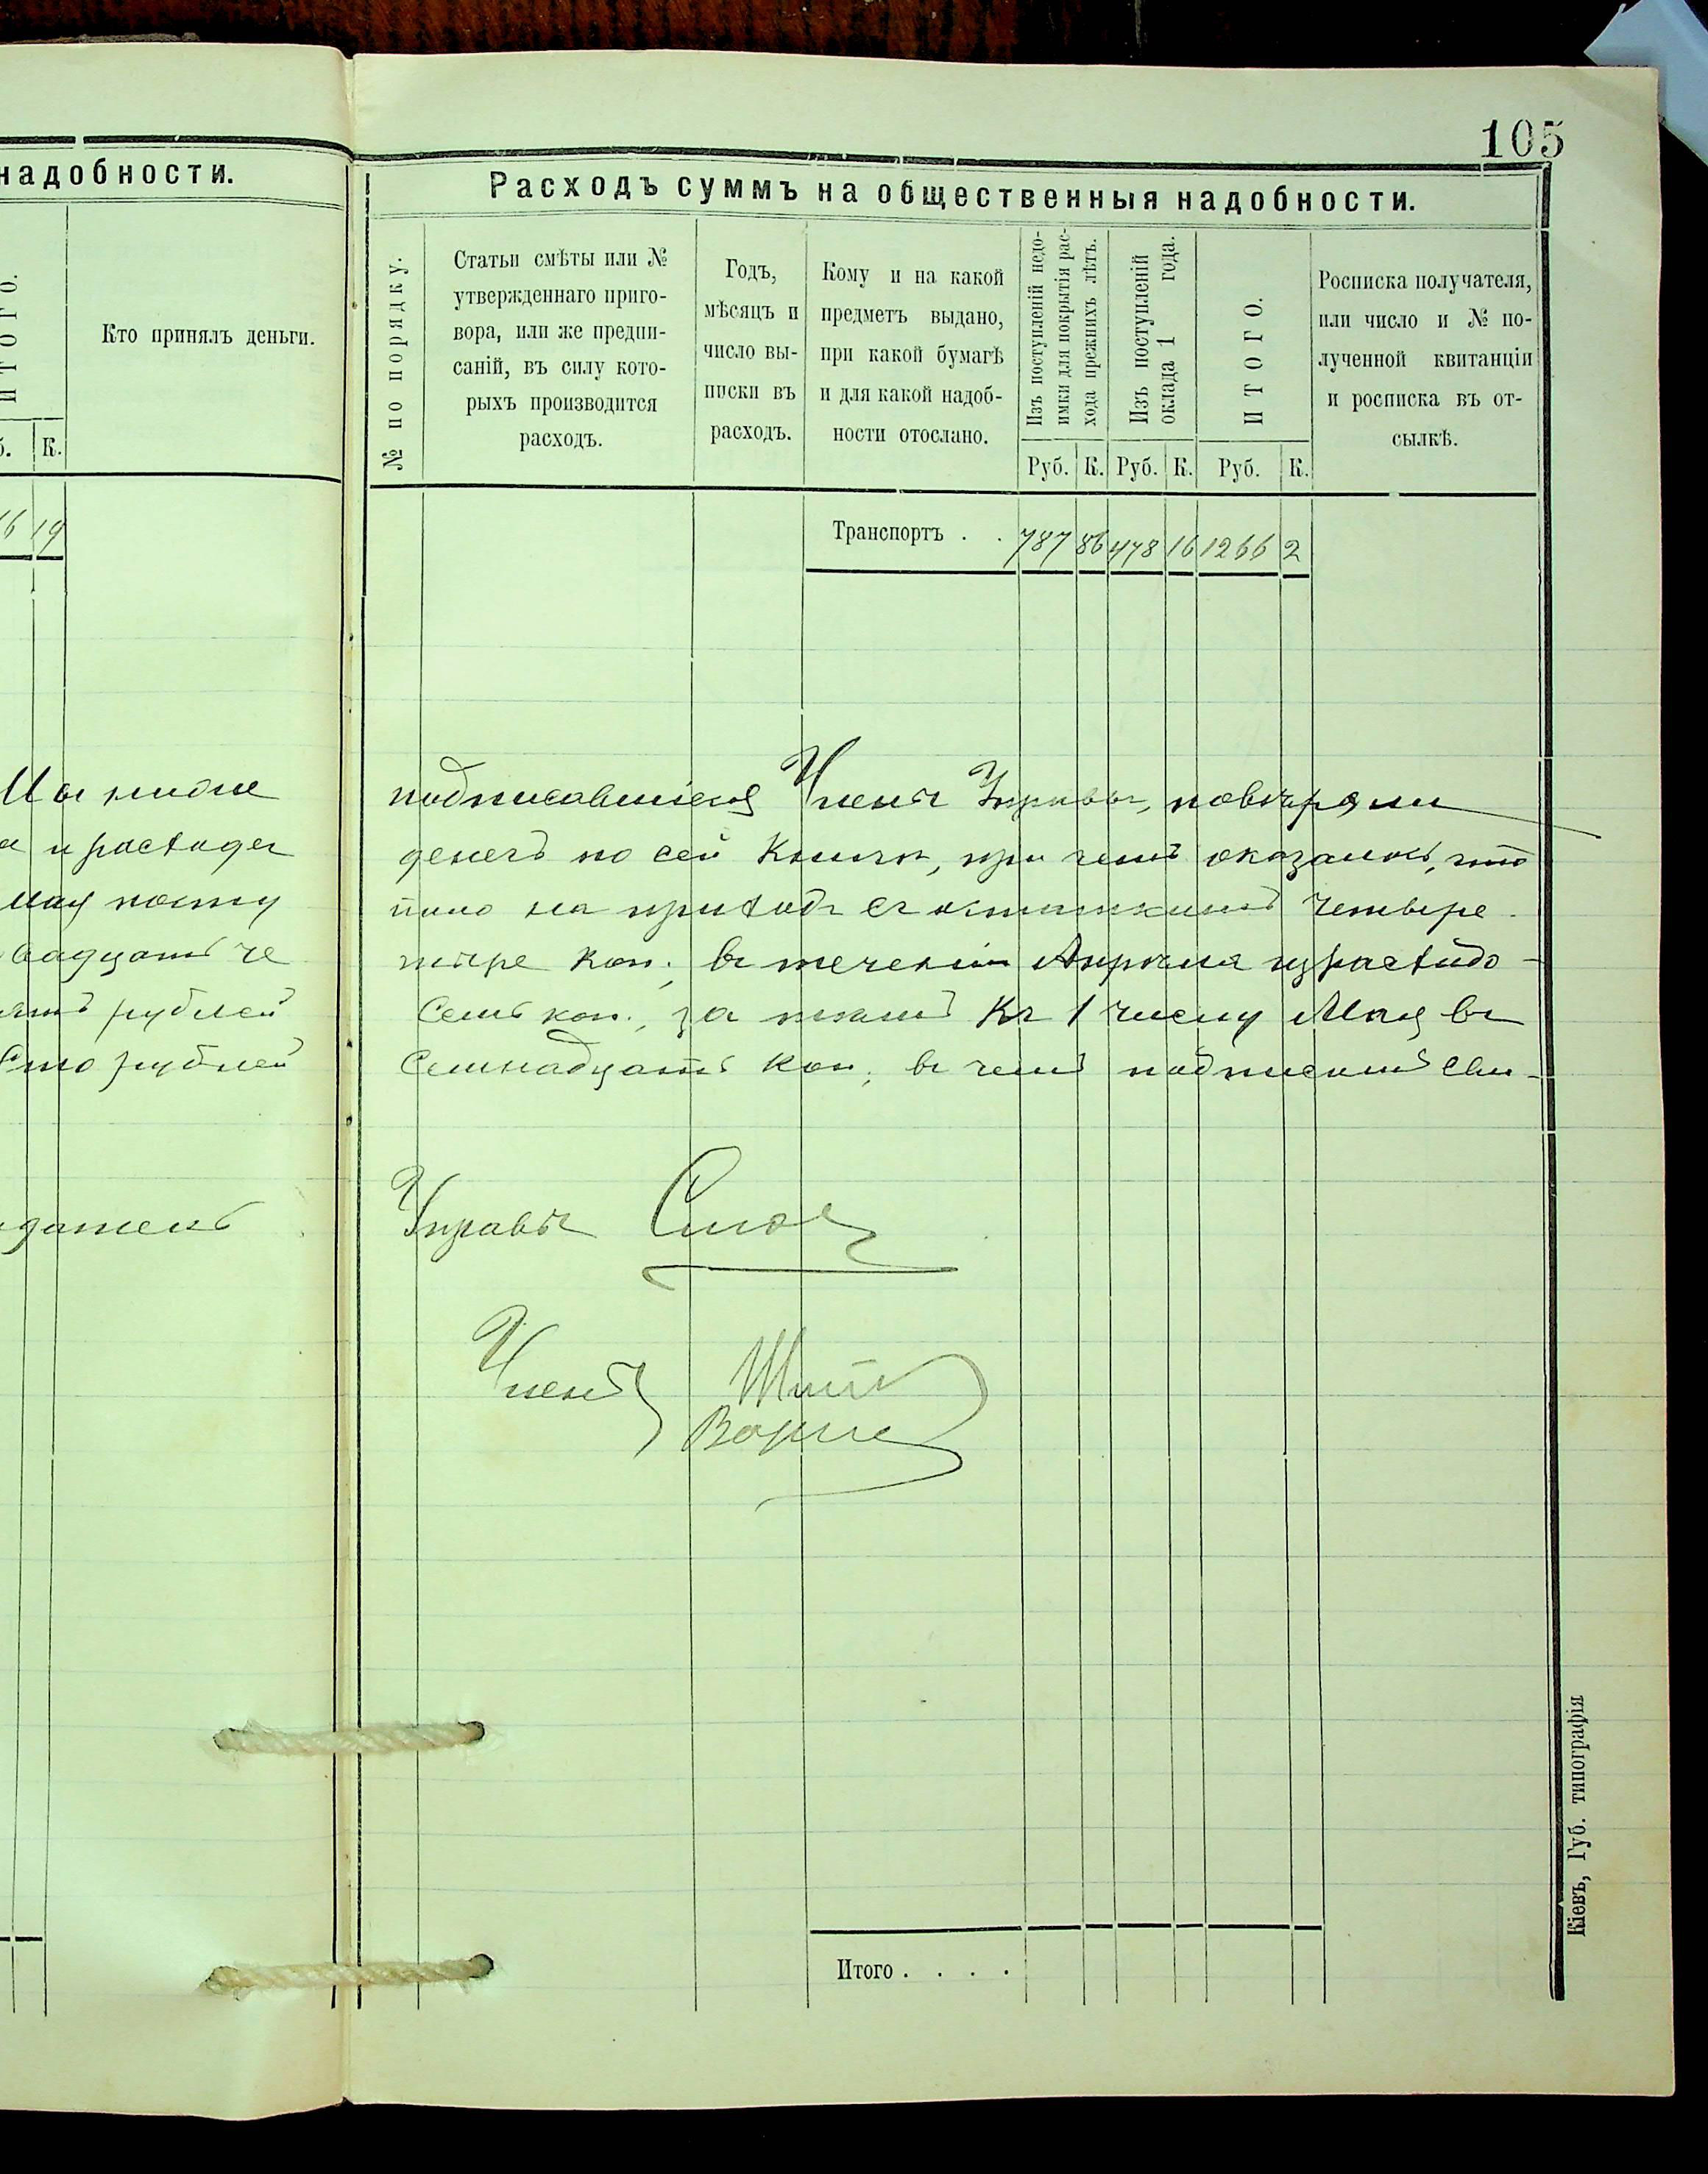 105
надобности.
ИТОГО.
Кто принялъ деньги.
К.
16 19
Мы ниже
и расхода
мая
вадцать че
рублей
Сто рублей
Расходъ суммъ на общественныя надобности.
№ по порядку.
Статьи смѣты или №
утвержденнаго приго-
вора, или же предпи-
саній, въ силу кото-
рыхъ производится
расходъ.
Годъ,
мѣсяцъ и
число вы-
писки въ
расходъ.
Кому и на какой
предметъ выдано,
при какой бумагѣ
и для какой надоб-
ности отослано.
Изъ поступленій недо-
имки для покрытія рас-
хода прежнихъ лѣтъ.
Изъ поступленій
оклада 1 года.
ИТОГО.
Росписка получателя,
или число и № по-
лученной квитанціи
и росписка въ от-
сылкѣ.
Руб. К. Руб. К. Руб. К.
Транспортъ . . 787 86 478 16 1266 2
подписавшіеся Члены Управы, повѣряли
денегъ по сей Книгѣ, при чемъ оказалось, что
пило на приходъ съ остаткомъ Четыре
тыре коп., въ теченіи Апрѣля израсходо-
Семь коп., за тѣмъ Къ 1 числу Мая въ
Семнадцать Коп., въ чемъ подписомъ Сви-
Управы
Члены
Итого . . . .
Кіевъ, Губ. типографія